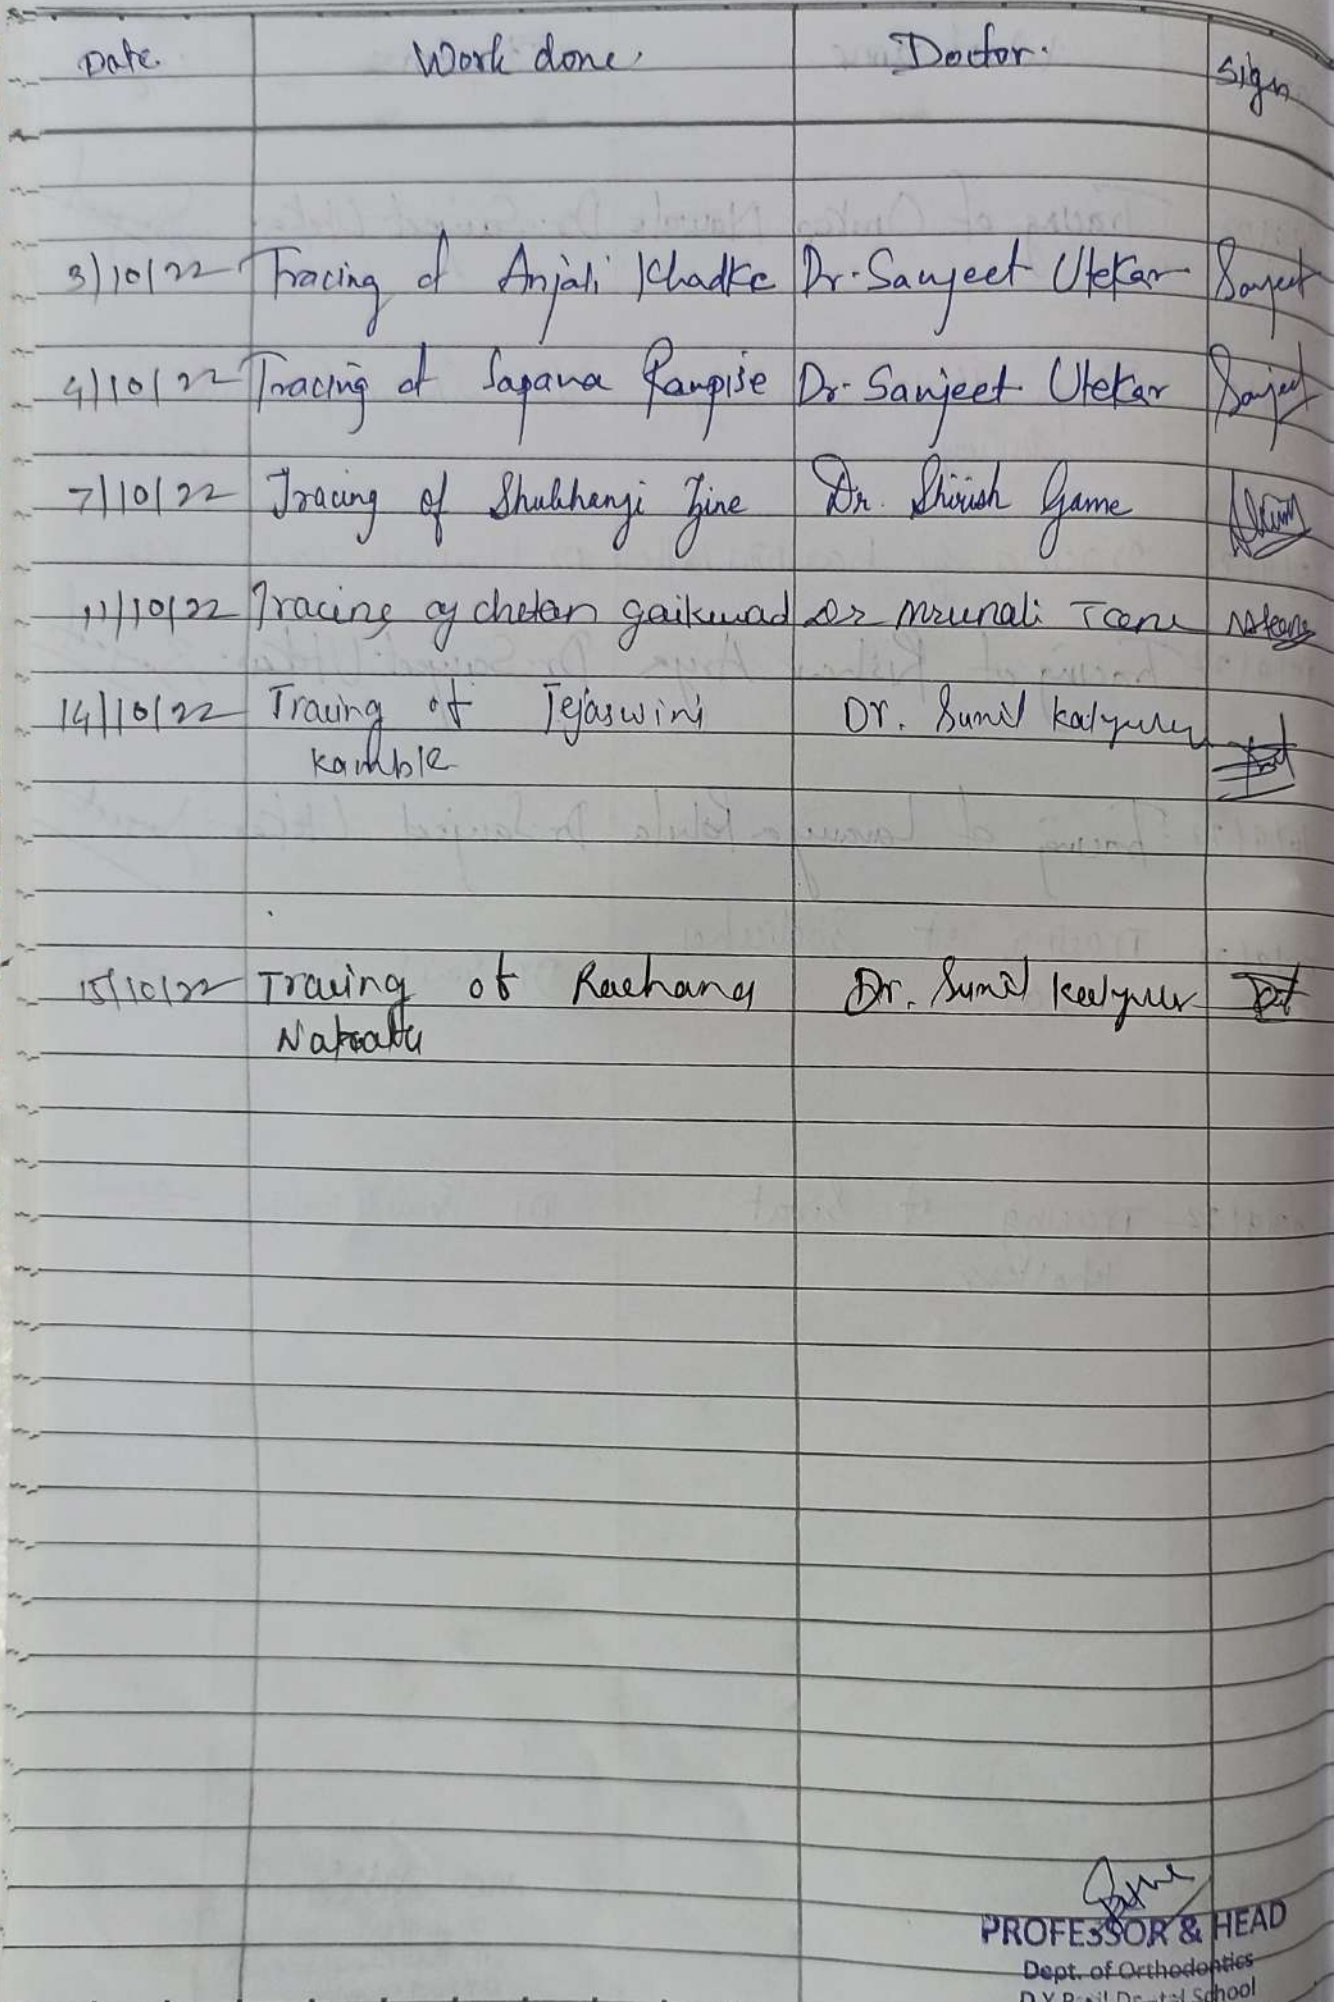 Date. Work done. Doctor. Sign
3/10/22 Tracing of Anjali Khadke Dr. Sanjeet Utekar Sanjeet
4/10/22 Tracing of Sapana Rampise Dr. Sanjeet Utekar Sanjeet
7/10/22 Tracing of Shubhangi Zine Dr. Shirish Game
11/10/22 Tracing of chetan gaikwad Dr Mrunali
14/10/22 Tracing of Tejaswini Dr. Sunil
Kamble
15/10/22 Tracing of Rachana Dr. Sunil
PROFESSOR & HEAD
Dept. of Orthodontics
D.Y. Patil Dental School